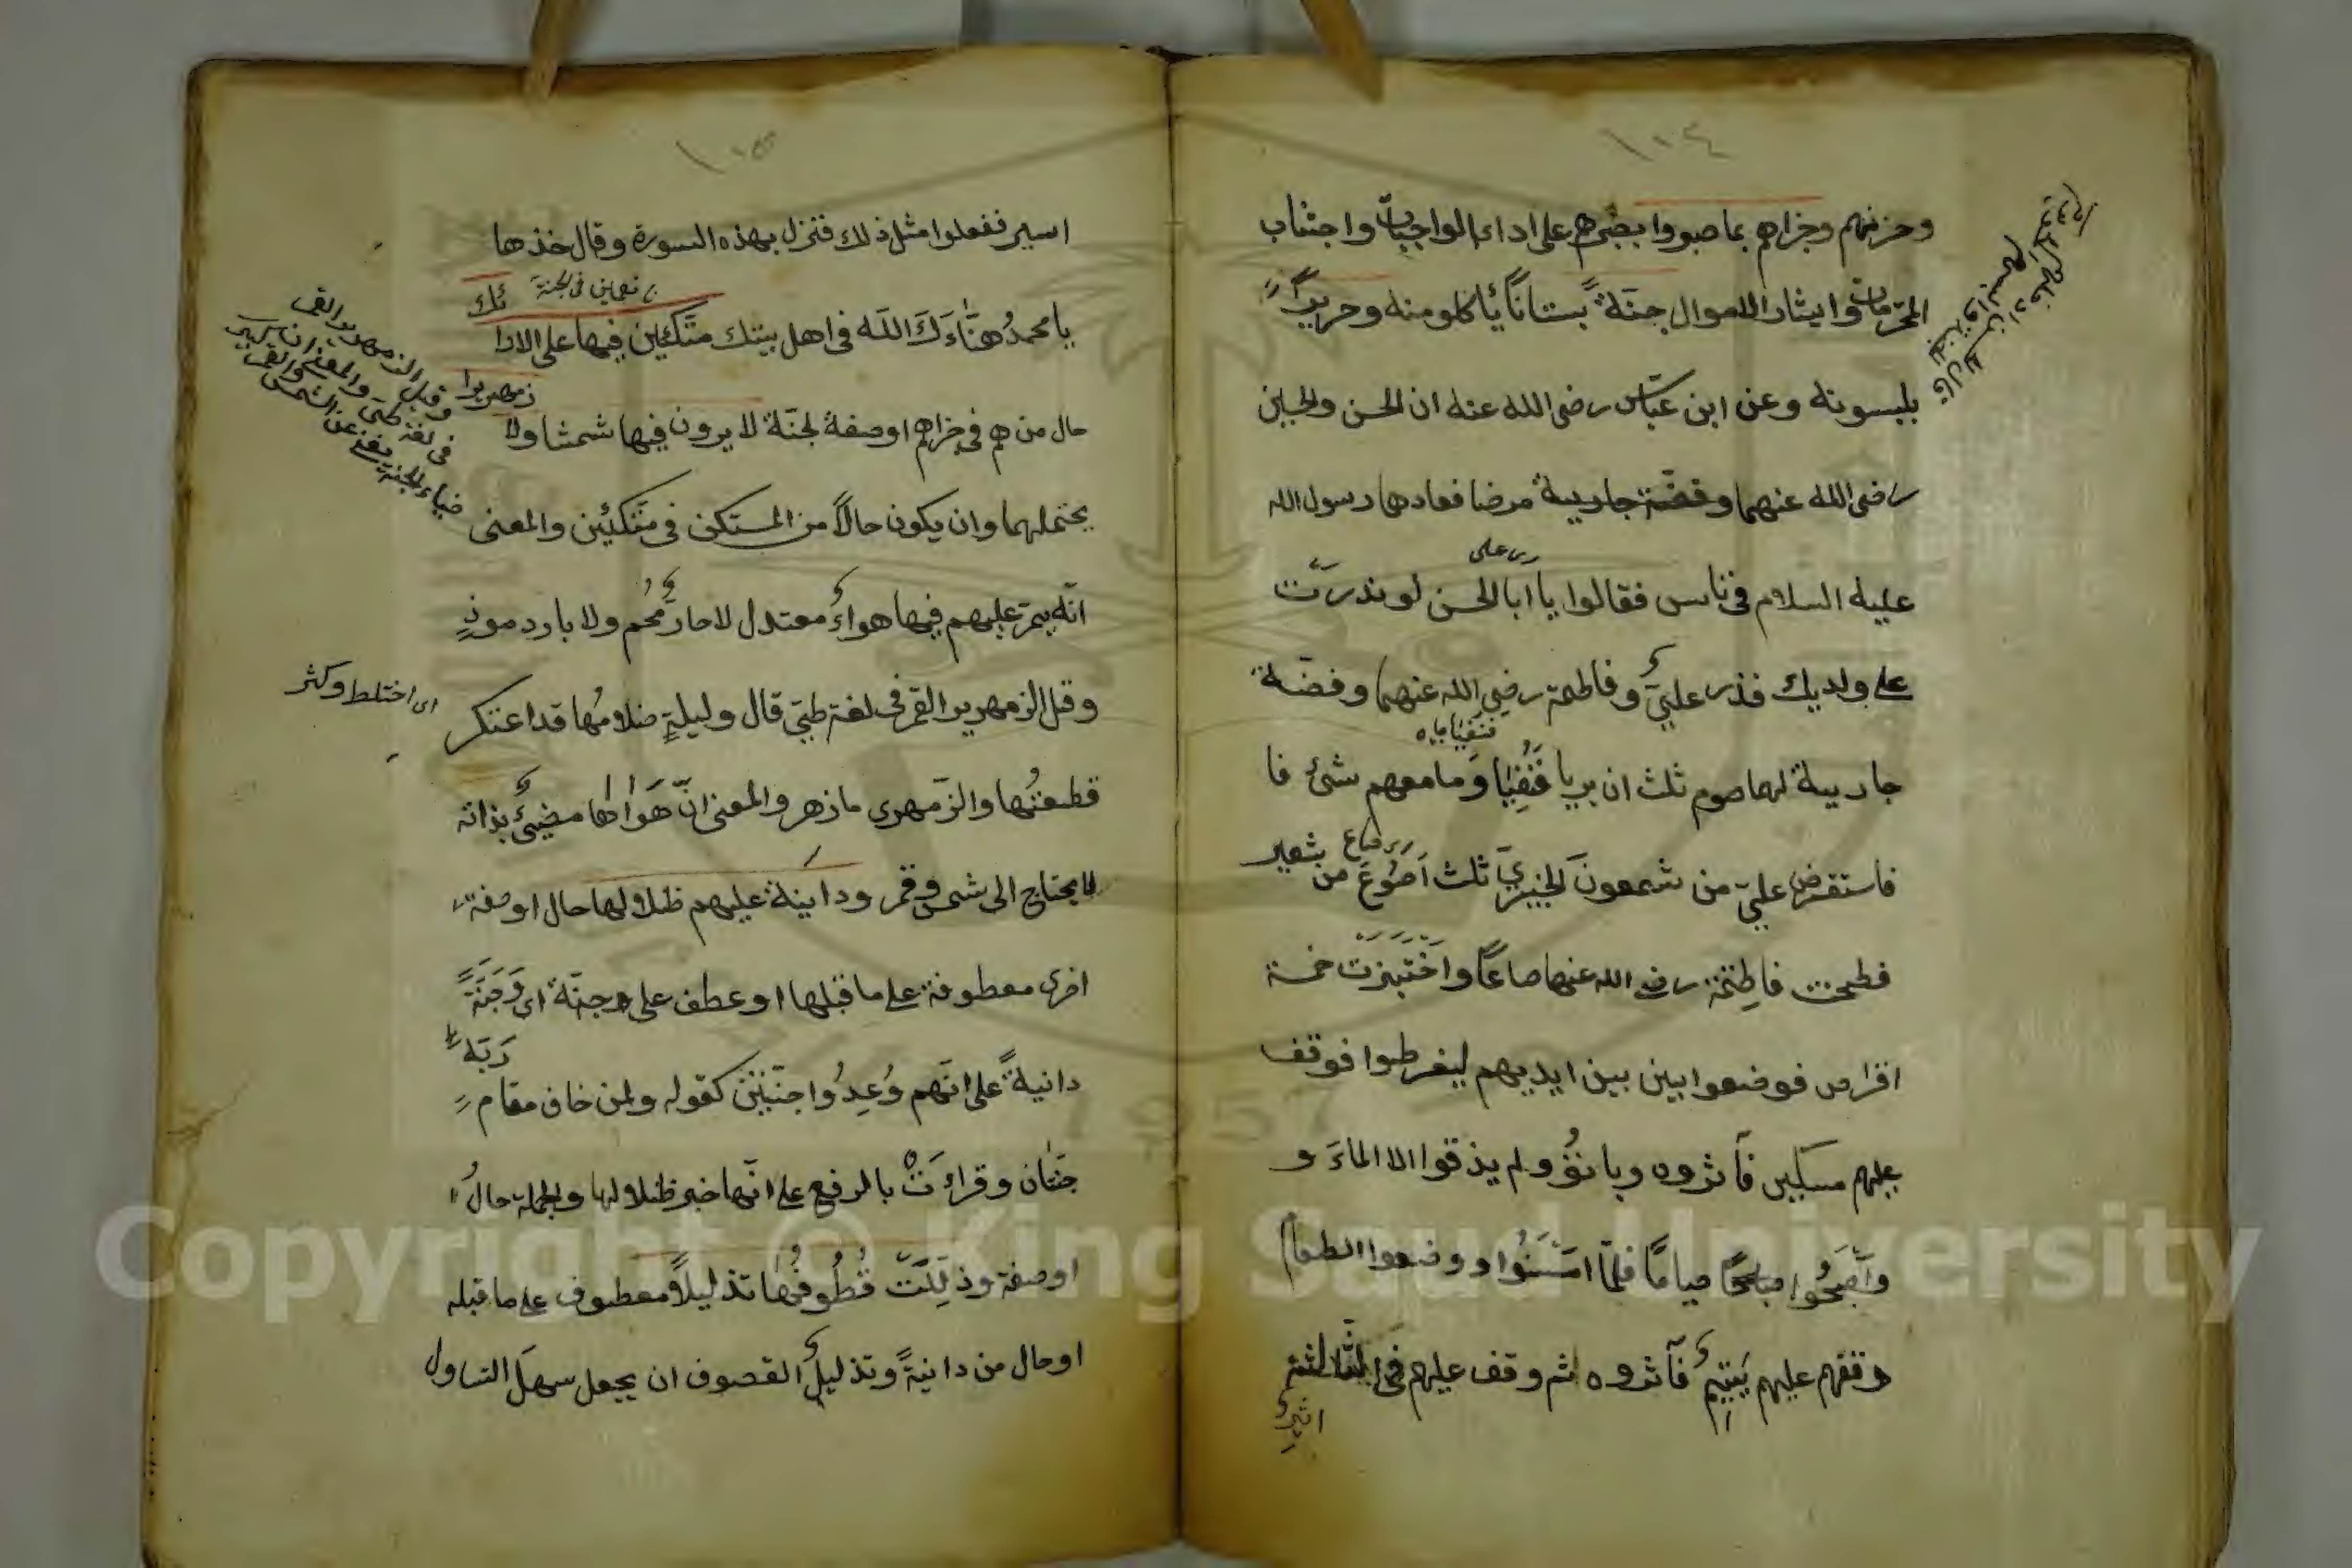 ١٠٤
وحزنهم وجزاهم بما صبروا بصبرهم على اداء الواجبات واجتناب
المحرمات وايثار الاموال جنّةً بستاناً يأكلو منه وحريراً
يلبسونه وعن ابن عبّاس رضى الله عنه ان الحسن والحسين
رضى الله عنهما وفضّة جارية مرضا فعادها رسول الله
على
عليه السلام فى ناس فقالوا يا ابا الحسن لو نذرت
على ولديك فنذر عليّ وفاطمة رضى الله عنهما وفضّة
جارية لهما صوم ثلث ان بريا فَشُفِيَا وَمامعهم شئ فا
صاع
فاستقرض عليّ من شمعون الخيبريّ ثلث اَصْوُعَ من شعير
فطحنت فاطِمَة رضى الله عنها صاعًا واخْتَبَزَت خمسة
اقراص فوضعوا بين بين ايديهم ليفرطوا فوقف
عليهم مسكين فآثروه وباتوُ ولم يذقوا الا الماءَ و
واَصْبَحُوا صياماً فلمّا امْسَوْا ووضعوا الطعام
وقفهم عليهم يَتيِمٌ فآثروه ثم وقف عليهم فى الثالثة
اسير
١٠٥
اسير ففعلوا مثل ذلك فنزل بهذه السورة وقال خذها
فى الجنة
يا محمدُ هنّاءَكَ الله فى اهل بيتك متّكئين فيها على الارا
ئك
حال من هم فى جزاهم او صفة لجنّة لا يرون فيها شمسًا ولا
زمهريرا
يحتملهما وان يكون حالاً من المستكن فى متّكئين والمعنى
انّه يمرّ عليهم فيها هواءٌ معتدل لا حارٌ مُحم ولا بارد موذٍ
وقيل الزمهرير القمر فى لغة طيّ قال وليلةٍ ضلامُها قد اعتكر
اى اختلط وكثر
قطعتُها والزّمهرى مازهر والمعنى انّ هَواها مضيئٌ بذاته
لا يحتاج الى شمس وقمر ودانيةً عليهم ظلالها حال او صفة
اخرى معطوفة على ما قبلها او عطف على جنّة اى وَجَنَّةً
دانيةً على انّهم وُعِدُوا جنّتين كقوله ولمن خاف مقام
رَبّه
جنّتان وقراءَتْ بالرفع على انّها خبر ظلالها والجملة حالٌ
او صفة وذلّلَتْ قُطُوفُها تذليلاً معطوف على ما قبله
او حال من دانيةً وتذليل القصوف ان يجعل سهلَ التناول
وقيل الزمهرير القمر
فى لغة طيّ والمعنى ان
ضياء الجنة
Copyright © King Saud University
1957